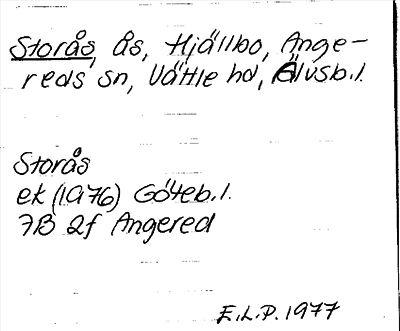 Storås, ås, Hjällbo, Ange-
reds sn, Vättle hd, Älvsb.l.
Storås
ek (1976) Göteb.l.
7B 2f Angered
E.L.P. 1977